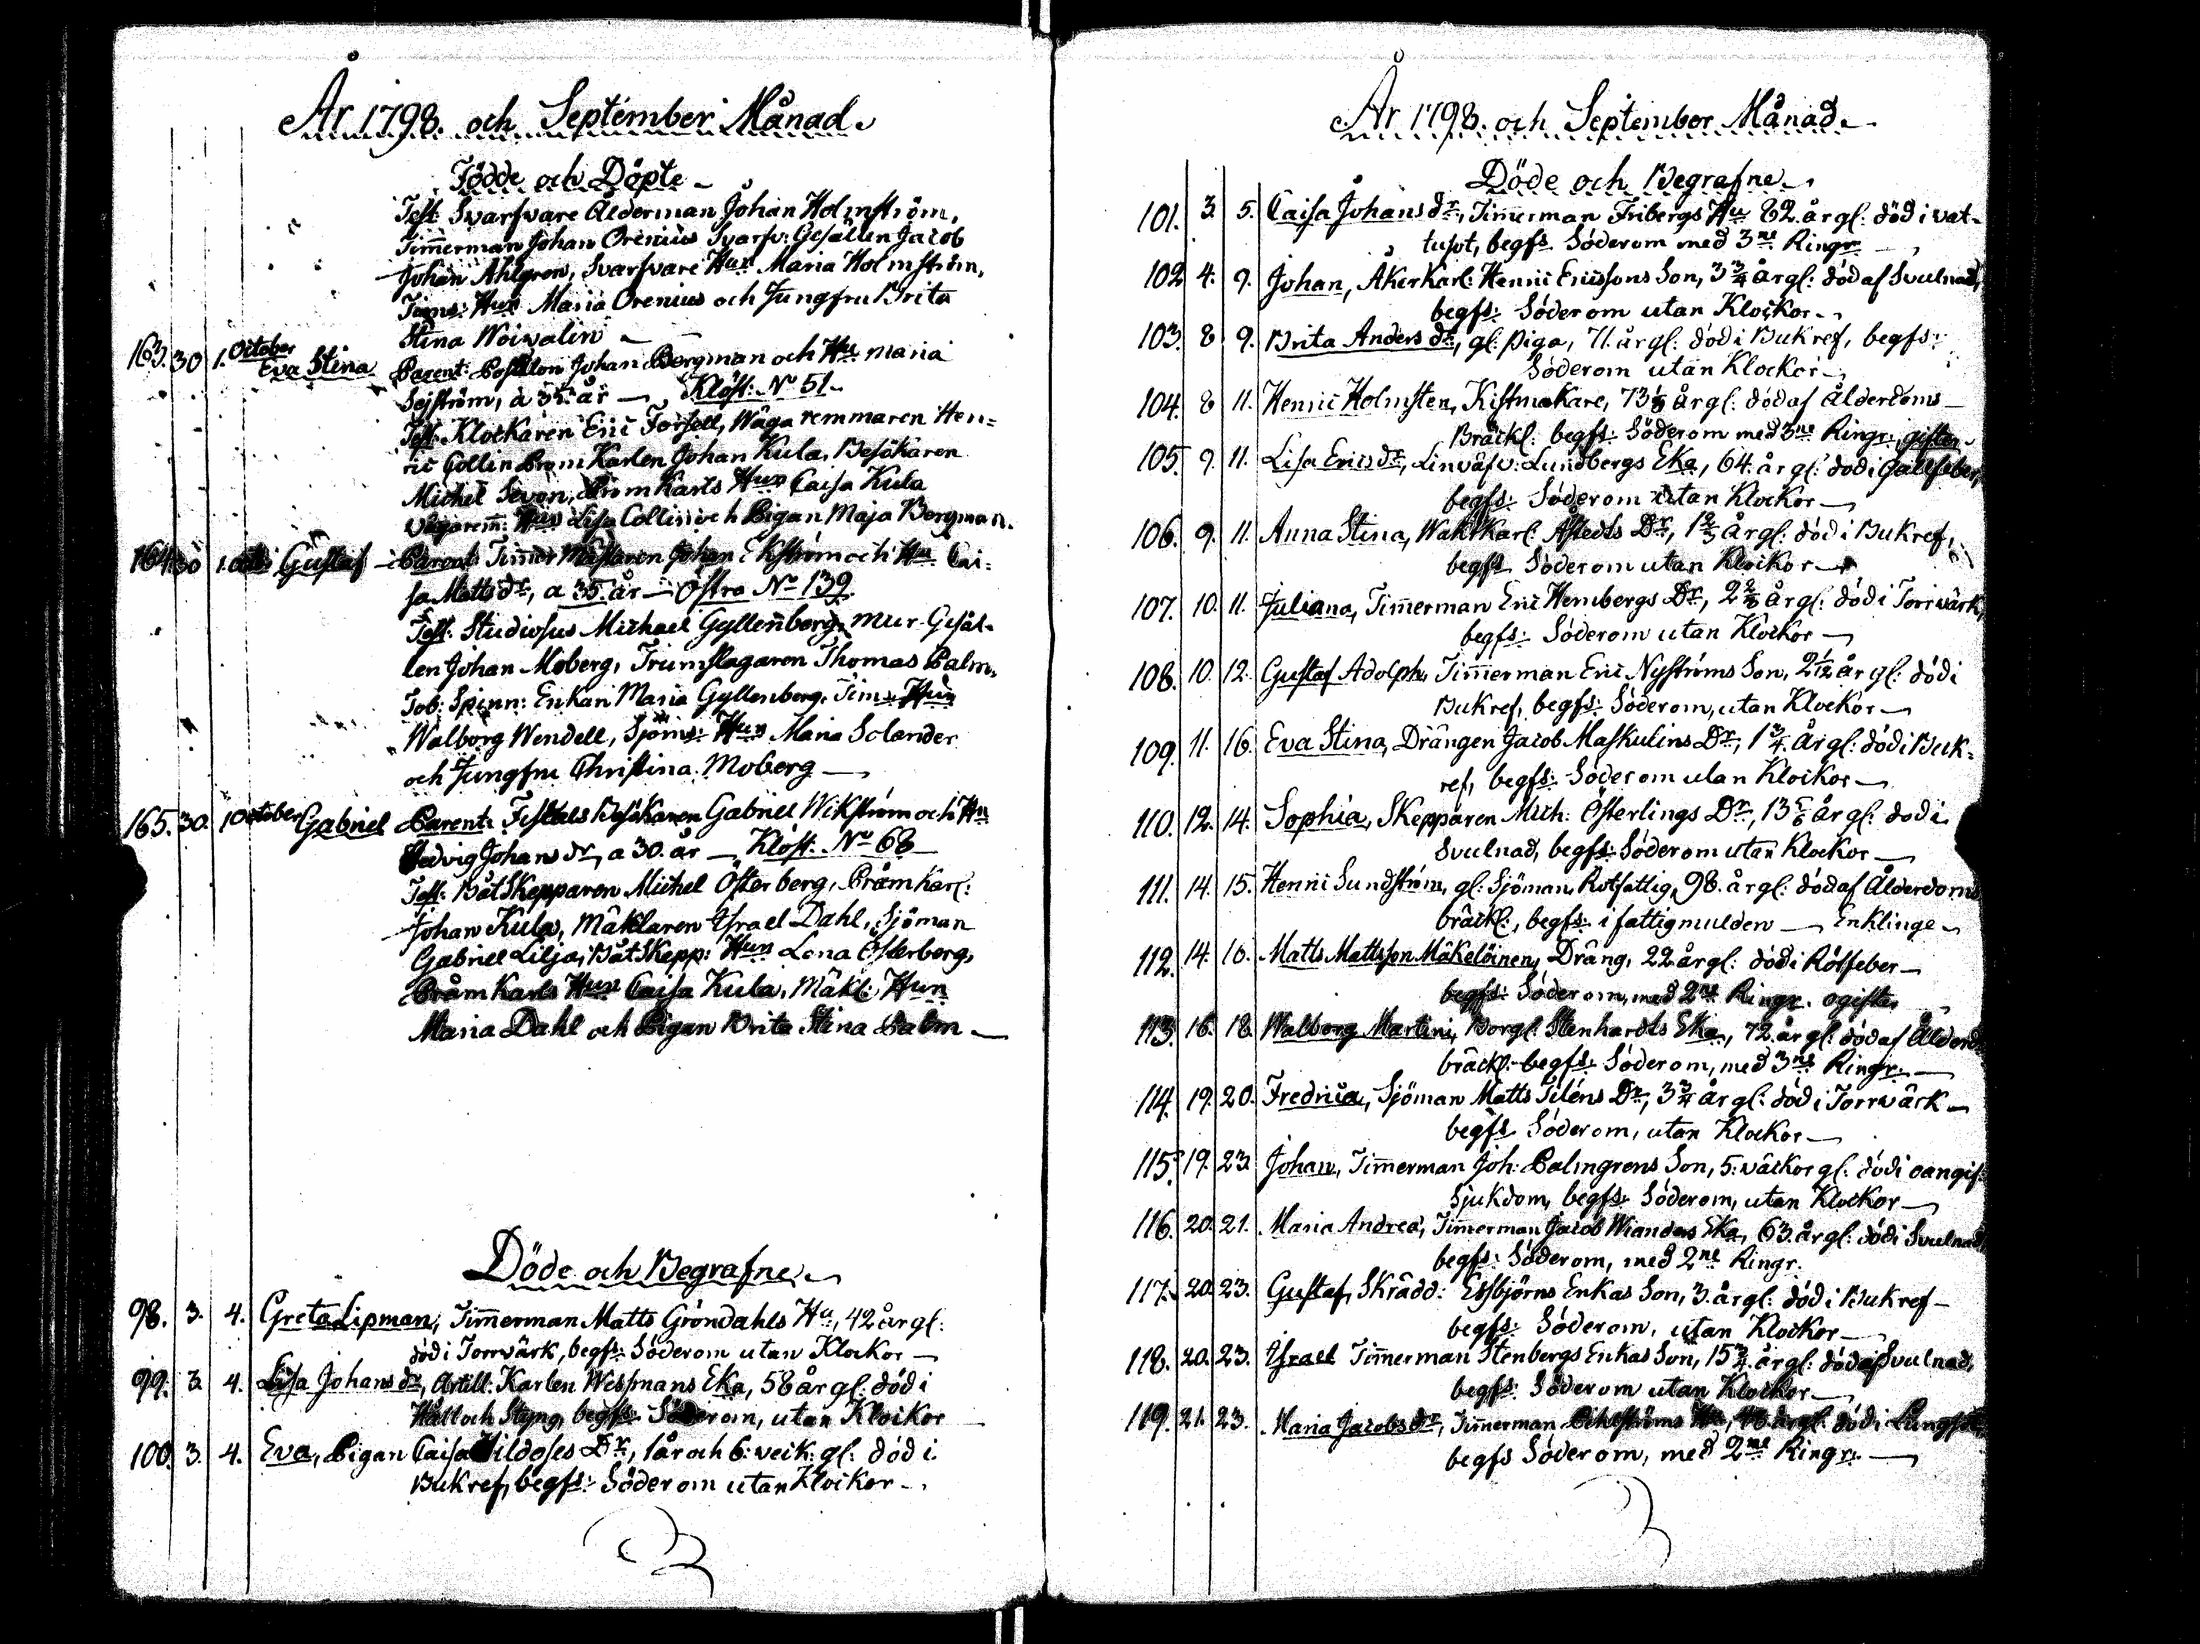 År 1798. och September Månad.
Födde och Döpte
Test: Svarfvare Ålderman Johan Holmström,
Timmerman Johan Orenius Svarfv: Gesällen Jacob
Johan Ahlgren, Svarfvare Hun Maria Holmström,
Timms: Hun Maria Orenius och Jungfru Brita
Stina Woivalin
163. 30 1. October Eva Stina Parent: Postillon Johan Bergman och Hu Maria
Sejström, a 35 år — Klöst: No 51
Test: Klockaren Eric Forsell, Wåga remmaren Hen=
ric Gollin Pråm Karlen Johan Kula, Besökaren
Michel Sevon, Pråm Karls Hun Caisa Kula
Hun Lisa Collin och Pigan Maja Bergman.
164. 30 1. Gustaf Parent: Timmer Mästaren Johan Ekström och Hu Cai=
sa Matts dr, a 35 år — Östra No 139
Test: Studiosus Michael Gyllenberg, Mur-Gesäl-
len Johan Moberg, Trumslagaren Thomas Palm,
Tob: Spinn: Enkan Maria Gyllenberg, Tim: Hun
Walborg Wendell, Sjöms: Hun Maria Solander
och Jungfru Christina Moberg —
165. 30. 1 October Gabriel Parent: Besökaren Gabriel Wikström och Hu
Hedvig Johans dr, a 30. år — Klöst: No 68
Test: Båt Skepparen Michel Österberg, Pråm Karl:
Johan Kula, Mäklaren Israel Dahl, Sjöman
Gabriel Lilja, Båt Skepp: Hun Lena Österberg,
Pråm Karls Hun Caisa Kula, Mäkl: Hun
Maria Dahl och Pigan Brita Stina Palm —
Döde och Begrafne
98. 3. 4. Greta Lipman, Timmerman Matts Gröndahls Hu, 42 år gl:
död i Torrvärk, begfs: Söderom utan Klockor —
99. 3. 4. Lisa Johans dr, Artill: Karlen Wessmans Eka, 58 år gl: död i
Håll och Styng, begfs: Söderom, utan Klockor
100. 3. 4. Eva, Pigan Caisa Dr, 1 år och 6: veck: gl: död i
Bukref, begfs: Söderom utan Klockor
År 1798. och September Månad.
Döde och Begrafne
101. 3. 5. Caisa Johans dr, Timmerman Fribergs Hu 82. år gl: död i vat-
tusot, begfs. Söderom med 3ne Ringr:
102 4. 9. Johan, Åkerkarl: Henric Ericssons Son, 3 3/4 år gl: död af Svulnad,
begfs: Söderom utan Klockor
103. 8 9. Brita Anders dr, gl: piga, 71. år gl: död i Bukref, begfs:
Söderom utan Klockor
104. 8 11. Henric Holmsten, Kistmakare, 73 1/3 år gl: död af Ålderdoms
Bräckl: begfs: Söderom med 3ne Ringr: giften
105. 9. 11. Lisa Erics dr, Linväfv: Lundbergs Eka, 64. år gl: död i Gallfeber,
begfs: Söderom utan Klockor —
106. 9. 11. Anna Stina, Waktkarl: Åsteds Dr, 1 2/3 år gl: död i Bukref,
begfs Söderom utan Klockor
107. 10. 11. Juliana, Timmerman Eric Hembergs Dr, 2 2/3 år gl: död i Torrvärk,
begfs: Söderom utan Klockor —
108. 10. 12. Gustaf Adolph, Timmerman Eric Nyströms Son, 2 1/12 år gl: död i
Bukref, begfs: Söderom, utan Klockor —
109. 11. 16. Eva Stina, Drängen Jacob Maskulins Dr, 1 3/4. år gl: död i Buk-
ref, begfs: Söderom utan Klockor —
110. 12. 14. Sophia, Skepparen Mich: Österlings Dr, 13 5/6 år gl: död i
Svulnad, begfs: Söderom utan Klockor —
111. 14. 15. Henric Sundström, gl: Sjöman, Rotfattig, 98. år gl: död af Ålderdoms
bräckl:, begfs: i fattigmulden — Enklinge
112. 14. 16. Matts Mattsson Mäkeläinen, Dräng, 22 år gl: död i Rötfeber —
begfs: Söderom, med 2ne Ringr. ogifter
113. 16. 18. Walborg Martini, Borgl: Stenhardts Eka, 72. år gl: död af Ålderd:
bräckl: begfs: Söderom, med 3ne Ringr: —
114. 19. 20. Fredrica, Sjöman Matts Siléns Dr, 3 3/4 år gl: död i Torrvärk —
begfs Söderom, utan Klockor —
115. 19. 23. Johan, Timmerman Joh: Palmgrens Son, 5: väckor gl: död i oangif:
Sjukdom, begfs: Söderom, utan Klockor —
116. 20. 21. Maria Andreæ, Timmerman Jacob Wianders Eka, 63. år gl: död i Svulnad,
begfs: Söderom, med 2ne Ringr.
117. 20. 23. Gustaf, Skrädd: Essbjörns Enkas Son, 3. år gl: död i Bukref —
begfs: Söderom, utan Klockor —
118. 20. 23. Israel Timmerman Stenbergs Enkas Son, 15 3/4. år gl: död af Svulnad,
begfs: Söderom utan Klockor —
119. 21. 23. Maria Jacobs dr, Timmerman Hu, år gl: död i
begfs Söderom, med 2ne Ringr: —